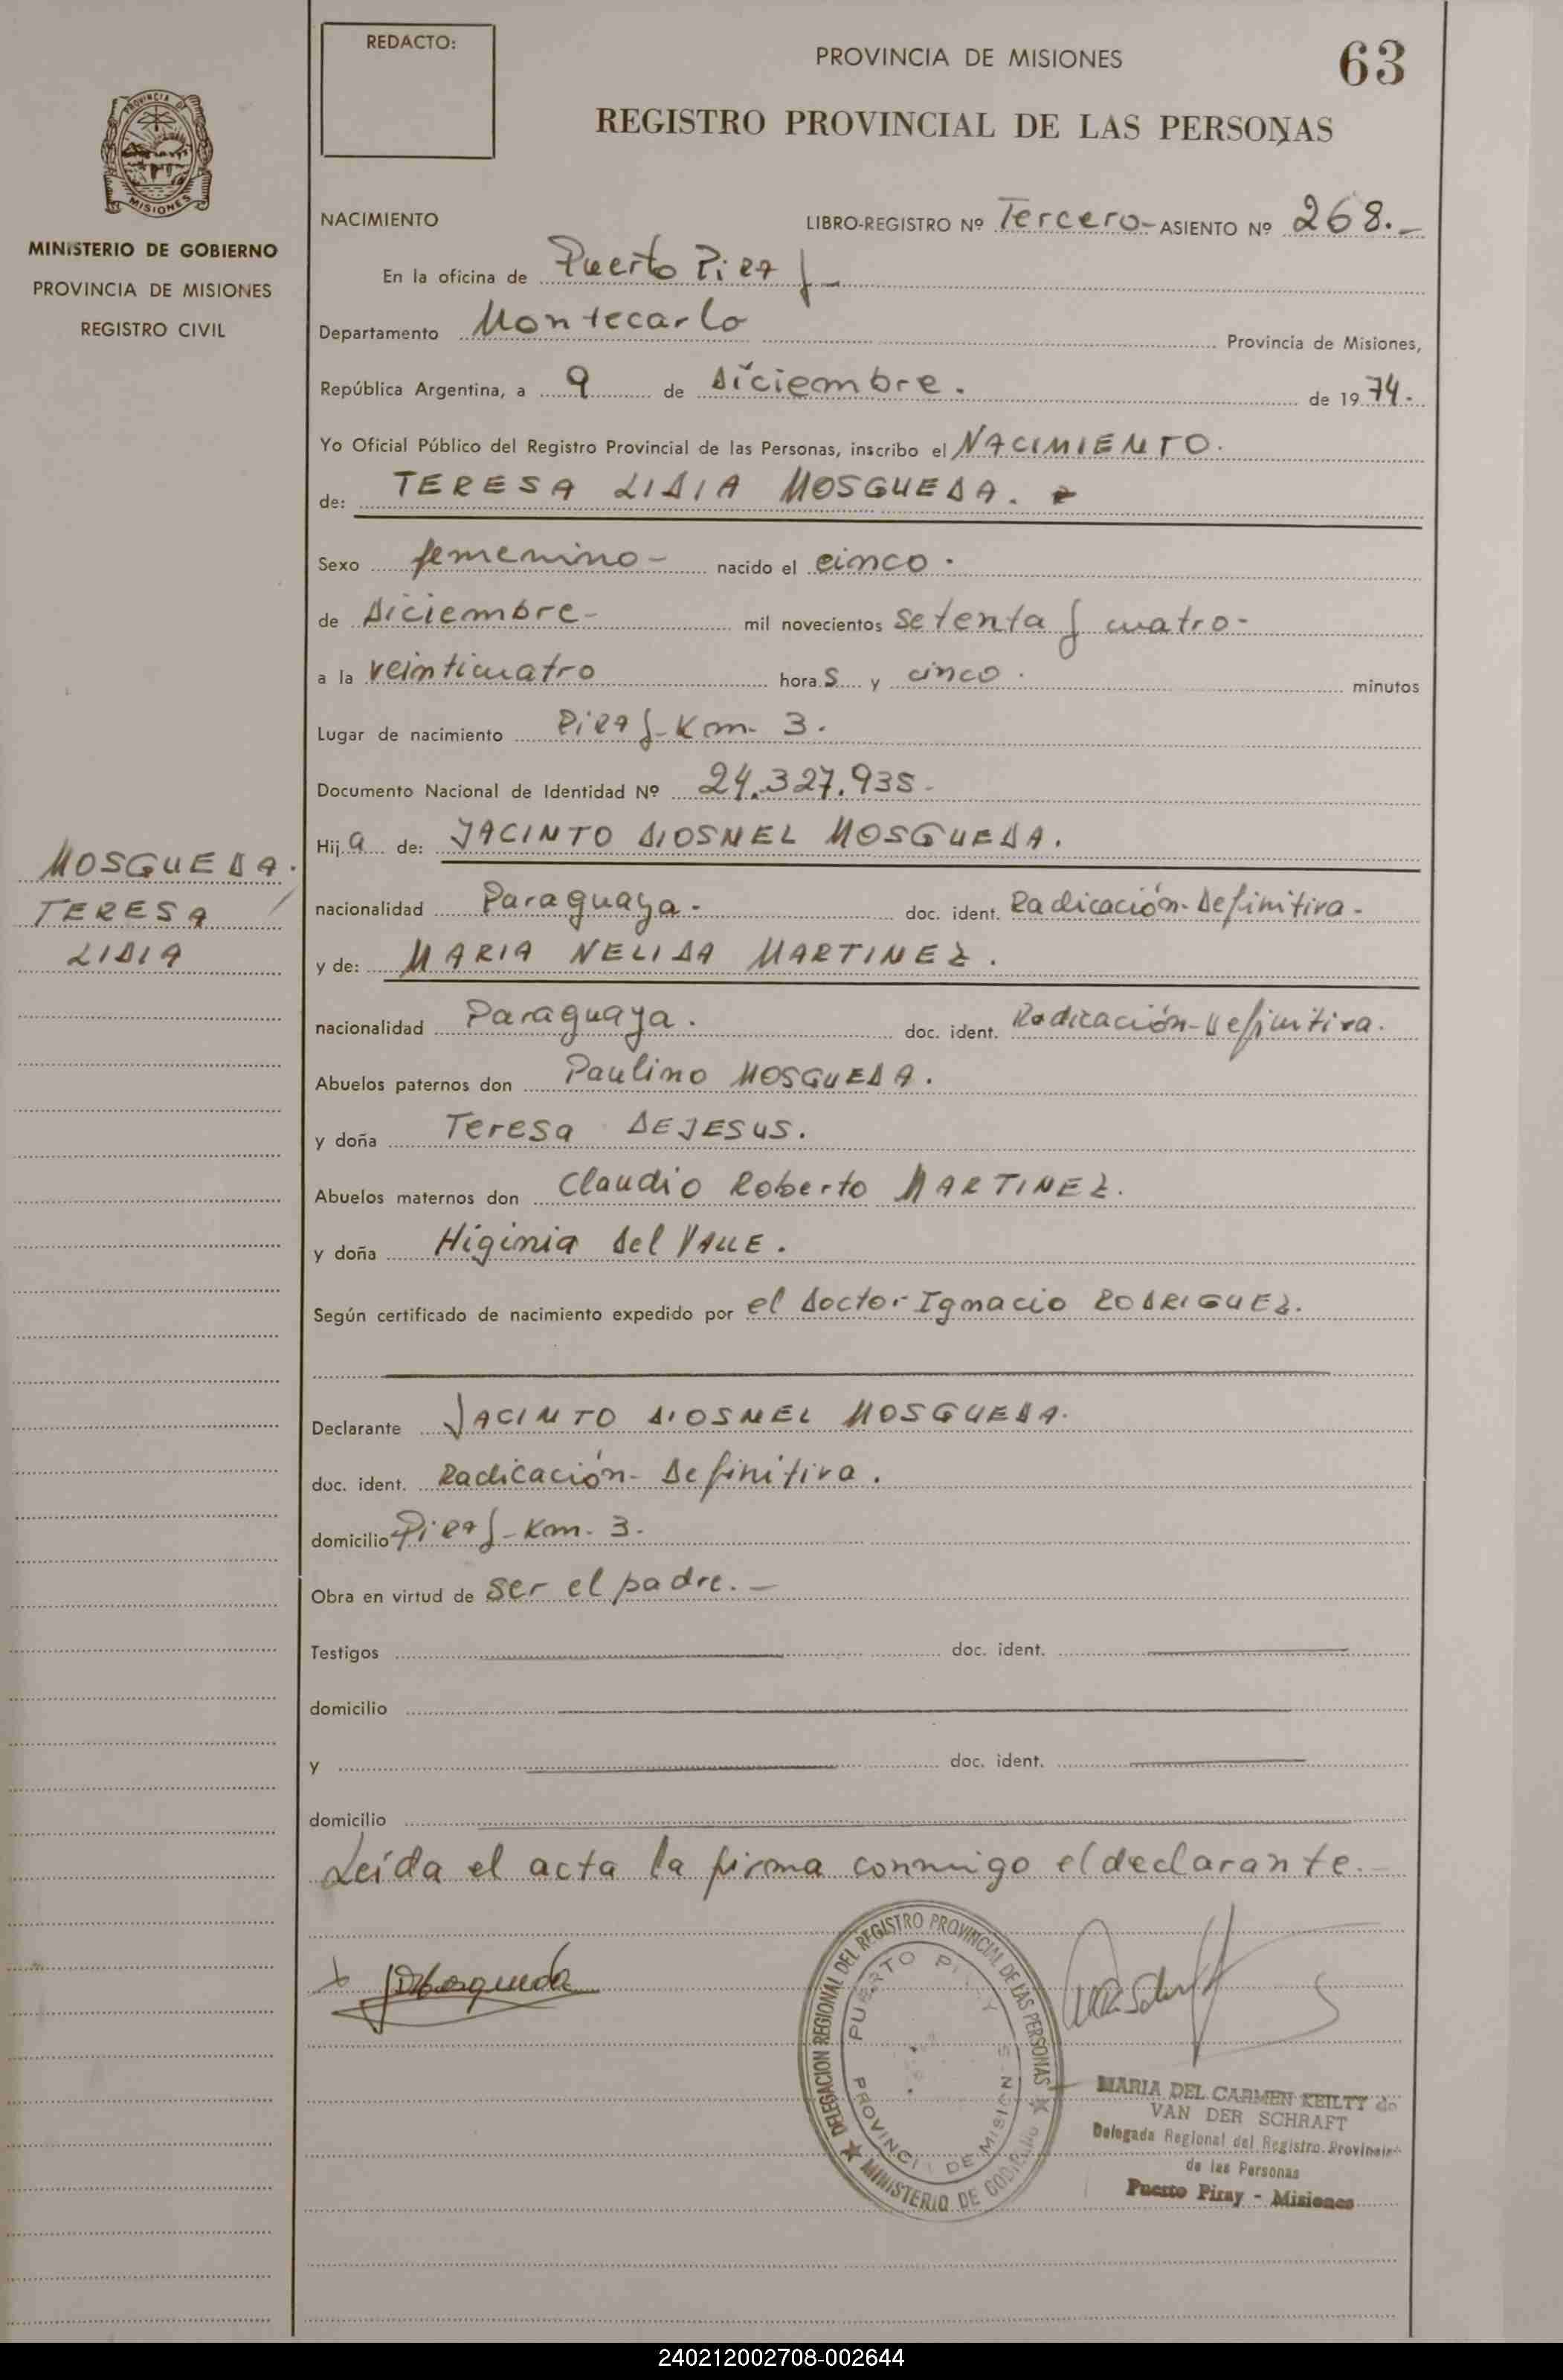 REDACTO:
PROVINCIA DE MISIONES
63
REGISTRO PROVINCIAL DE LAS PERSONAS
PROVINCIA DE
MISIONES
MINISTERIO DE GOBIERNO
PROVINCIA DE MISIONES
REGISTRO CIVIL
NACIMIENTO
LIBRO-REGISTRO Nº Tercero- ASIENTO Nº 268.-
En la oficina de Puerto Piray-
Departamento Montecarlo Provincia de Misiones,
República Argentina, a 9 de Diciembre. de 1974.
Yo Oficial Público del Registro Provincial de las Personas, inscribo el NACIMIENTO.
de: TERESA LIDIA MOSGUEDA.
Sexo femenino- nacido el cinco.
de Diciembre- mil novecientos setenta y cuatro-
a la veinticuatro horas y cinco. minutos
Lugar de nacimiento Piray-Km- 3.
Documento Nacional de Identidad Nº 24.327.935-
Hija de: JACINTO DIOSNEL MOSGUEDA.
MOSGUEDA.
TERESA
LIDIA
nacionalidad Paraguaya- doc. ident. Radicación-Definitiva-
y de: MARIA NELIDA MARTINEZ.
nacionalidad Paraguaya. doc. ident. Radicación-Definitiva.
Abuelos paternos don Paulino MOSGUEDA.
y doña Teresa DEJESUS.
Abuelos maternos don Claudio Roberto MARTINEZ.
y doña Higinia del VALLE.
Según certificado de nacimiento expedido por el Doctor Ignacio RODRIGUEZ.
Declarante JACINTO DIOSNEL MOSGUEDA.
doc. ident. Radicación- Definitiva.
domicilio Piray-Km. 3.
Obra en virtud de ser el padre.-
Testigos doc. ident.
domicilio
y doc. ident.
domicilio
Leída el acta la firma conmigo el declarante.-
DELEGACION REGIONAL DEL REGISTRO PROVINCIAL DE LAS PERSONAS
PUERTO PIRAY
PROVINCIA DE MISIONES
MINISTERIO DE GOBIERNO
MARIA DEL CARMEN KEILTY de
VAN DER SCHRAFT
Delegada Regional del Registro Provincial
de las Personas
Puerto Piray - Misiones
240212002708-002644